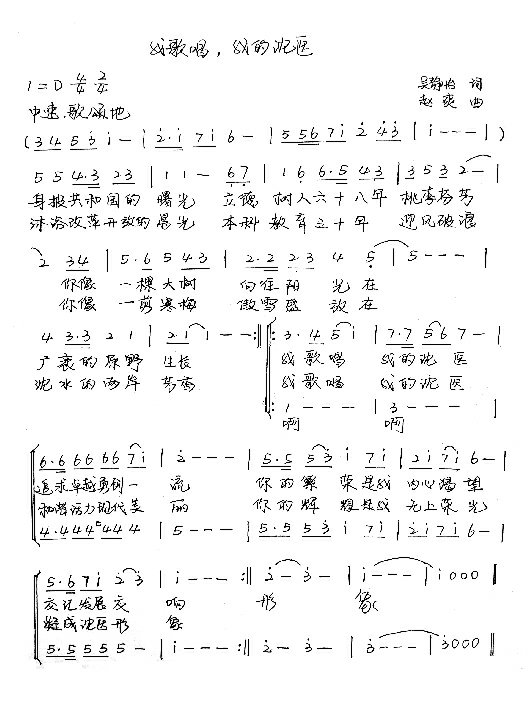 我歌唱，我的沈医
1=D 4/4 2/4 吴静怡 词
中速.歌颂地 赵爽 曲
(3 4 5 3 i - | 2·i 7 i 6 - | 5 5 6 7 i 2 4 3 | i - - - |)
5 5 4·3 2 3 | 1 1 - 6 7 | 1 6 6·5 4 3 | 3 5 3 2 - |
肩披共和国的 曙光 立德 树人六十八年 桃李芬芳
沐浴改革开放的晨光 本科教育三十年 迎风破浪
2 3 4 | 5·6 5 4 3 | 2·2 2 3 4 5 | 5 - - - |
你像 一棵大树 向往阳 光在
你像 一剪寒梅 傲雪盛 放在
4 3·3 2 1 | 2·1 1 - - :‖: 3·4 5 i | 7·7 5 6 7 - |
广袤的原野 生长 我歌唱 我的沈医
沈水的两岸 芬芳 我歌唱 我的沈医
1 - - - | 3 - - - |
啊 啊
6·6 6 6 6 6 7 i | 2 - - - | 5·5 5 3 i 7 i | 2 i 7 i 6 - |
追求卓越勇创一 流 你的繁 荣是我 内心渴望
和谐活力现代美 丽 你的辉 煌是我 无上荣光
4·4 4 4 4 4 4 | 5 - - - | 5·5 5 3 i 7 i | 2 i 7 i 6 - |
5·6 7 i 2 3 | i - - - :‖ 2 - 3 - | i - - - | i 0 0 0 ‖
交记发展交 响 形 象
凝成沈医形 象
5·5 5 5 5 - | i - - - :‖ i - i - | 3 - - - | 3 0 0 0 ‖